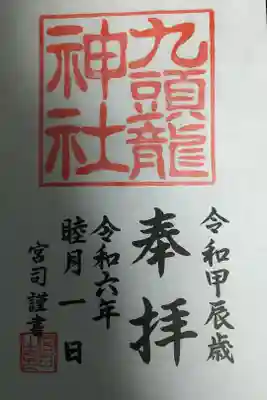 九頭龍
神社
令和甲辰歳
奉拝
令和六年
睦月一日
宮司謹書